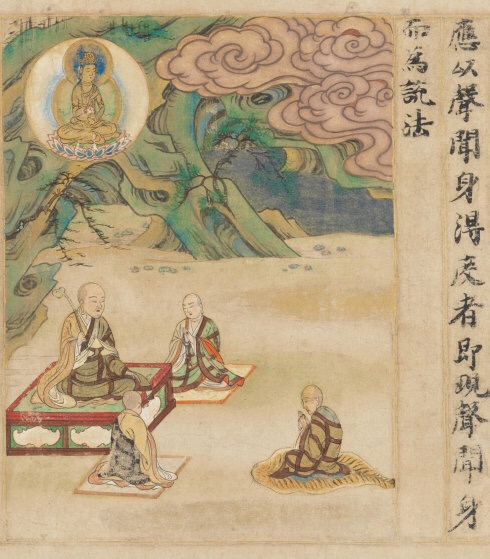 應以聲聞身得度者即現聲聞身
而為說法